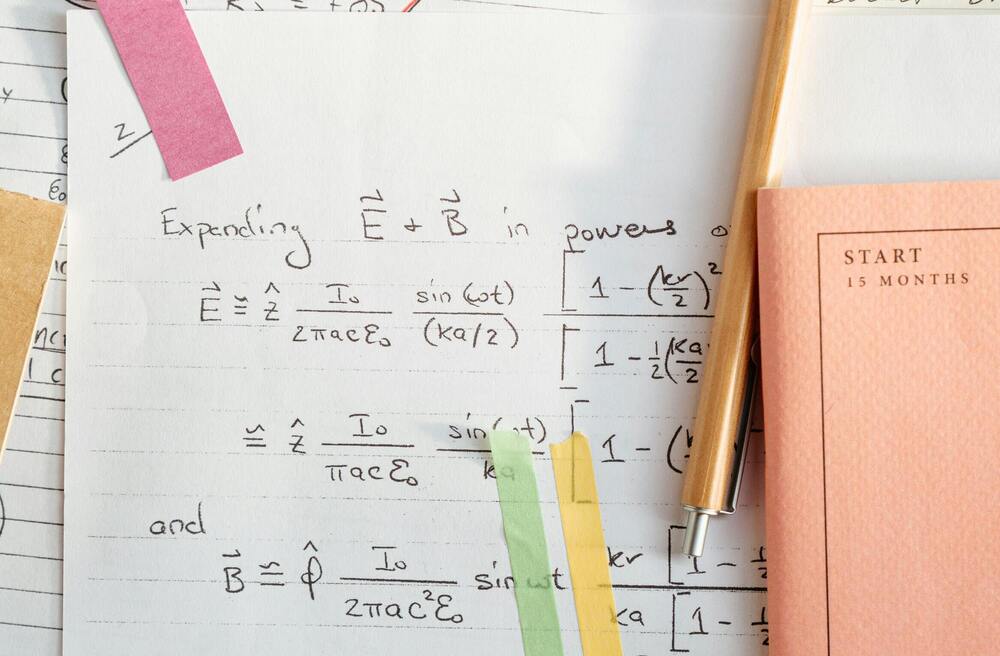 2
Expanding E⃗ + B⃗ in powers
E⃗ ≅ ẑ I₀/(2πacε₀) sin(ωt)/(ka/2) [1 - (kr/2)²]/[1 - ½(ka/2
≅ ẑ I₀/(πacε₀) sin(ωt)/ka [1 - (
and
B⃗ ≅ φ̂ I₀/(2πac²ε₀) sin ωt kr[1 - ½/ka[1 - ½
START
15 MONTHS